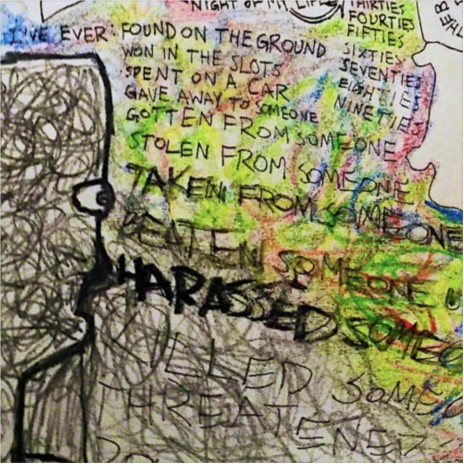 NIGHT OF MY LIFE
THIRTIES
FOURTIES
FIFTIES
SIXTIES
SEVENTIES
EIGHTIE
NINETIES
I'VE EVER FOUND ON THE GROUND
WON IN THE SLOTS
SPENT ON A CAR
GAVE AWAY TO SOMEONE
GOTTEN FROM SOMEONE
STOLEN FROM SOMEONE
TAKEN FROM SOMEONE
BEATEN SOMEONE U
HARASSED SOMEO
KILLED SOMEO
THREATENED